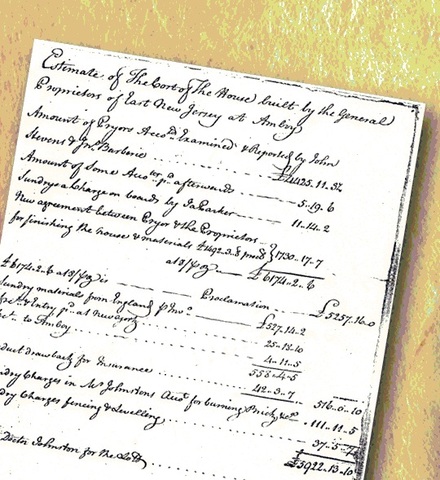 Estimate of The Cost of The House built by the General
Proprietors of East New Jersey at Amboy
Amount of Pryors Acco.ts Examined & Reported by John
Stevens & Jn.o Barberie £4425.11.3½
Amount of Some Acco.ts p.d afterwards 5.19.6
Sundrys a Charge on boards by Ja. Parker 11.14.2
New agreement between Pryor & the Proprietors
for finishing the house & materials £492.3.8 1730.17.7
at 3/ £6174.2.6
£6174.2.6 at 3/ is Proclamation £5257.16.0
Sundry materials from England £527.14.2
& Entry p.d at New York 25.18.10
to Amboy 4.11.5
558.4.5
duct drawback for Insurance 42.3.7
516.0.10
dry Charges in M.r Johnstons Acco.t for burning Brick &c.a 111.11.5
dry Charges fencing & Levelling 37.5.7½
£5922.13.10
Johnston for the Lott